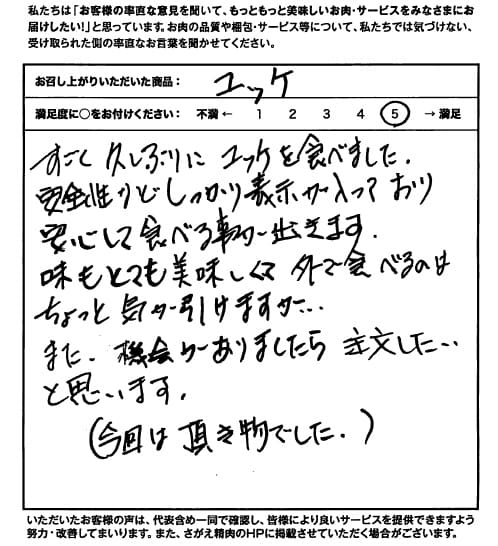 私たちは「お客様の率直な意見を聞いて、もっともっと美味しいお肉・サービスをみなさまにお
届けしたい!」と思っています。お肉の品質や梱包・サービス等について、私たちでは気づけない、
受け取られた側の率直なお言葉を聞かせてください。
お召し上がりいただいた商品: ユッケ
満足度に○をお付けください: 不満 ← 1 2 3 4 5 → 満足
すごく久しぶりにユッケを食べました.
安全性などしっかり表示が入っており
安心して食べる事が出来ます.
味もとても美味しくて外で食べるのは
ちょっと気が引けますが…
また、機会がありましたら注文したい
と思います.
(今回は頂き物でした.)
いただいたお客様の声は、代表含め一同で確認し、皆様により良いサービスを提供できますよう
努力・改善してまいります。また、さがえ精肉のHPに掲載させていただく場合がございます。